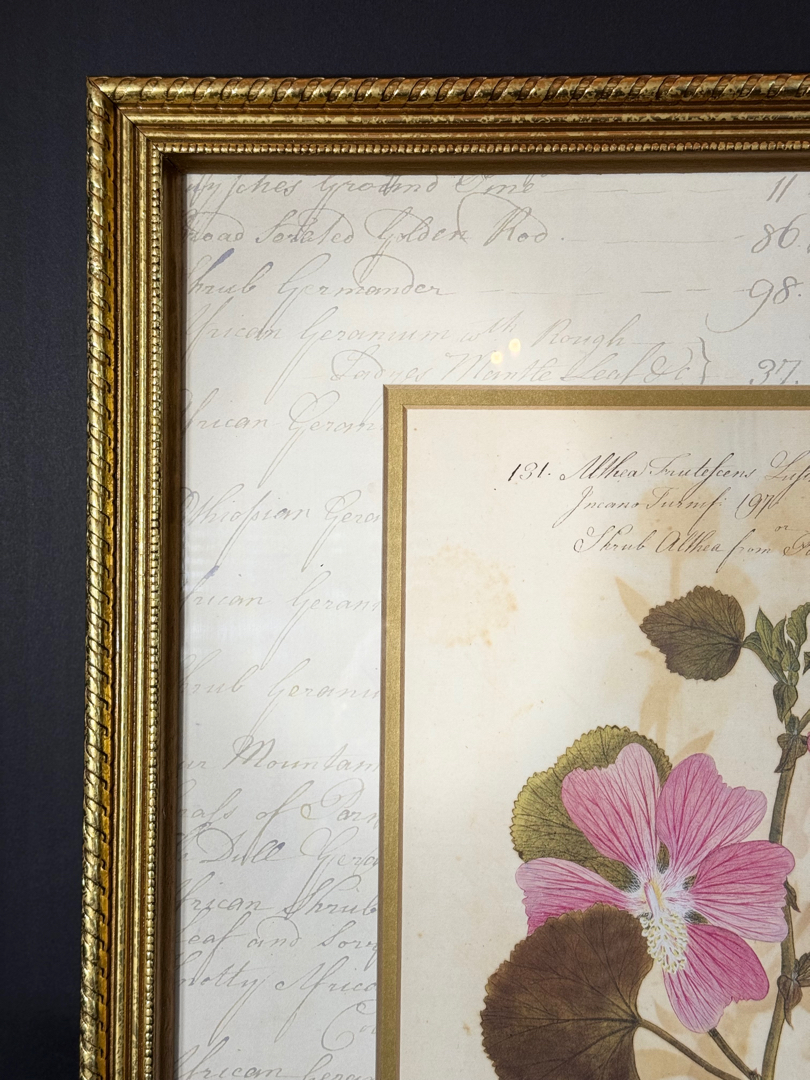 Ground Pine 11
road Golden Rod. 86.
hrub Germander 98.
frican Geranium with Rough
Ladyes Mantle Leaf &c} 37.
frican Gerani
thiopian Gera
frican Gerani
hrub Geraniu
ur Mountain
rass of Parn
Dull Gera
frican Shrub
eaf and
notty Africa
Co
frican Geran
131. Althea Frutescens
Incano 197
Shrub Althea from or